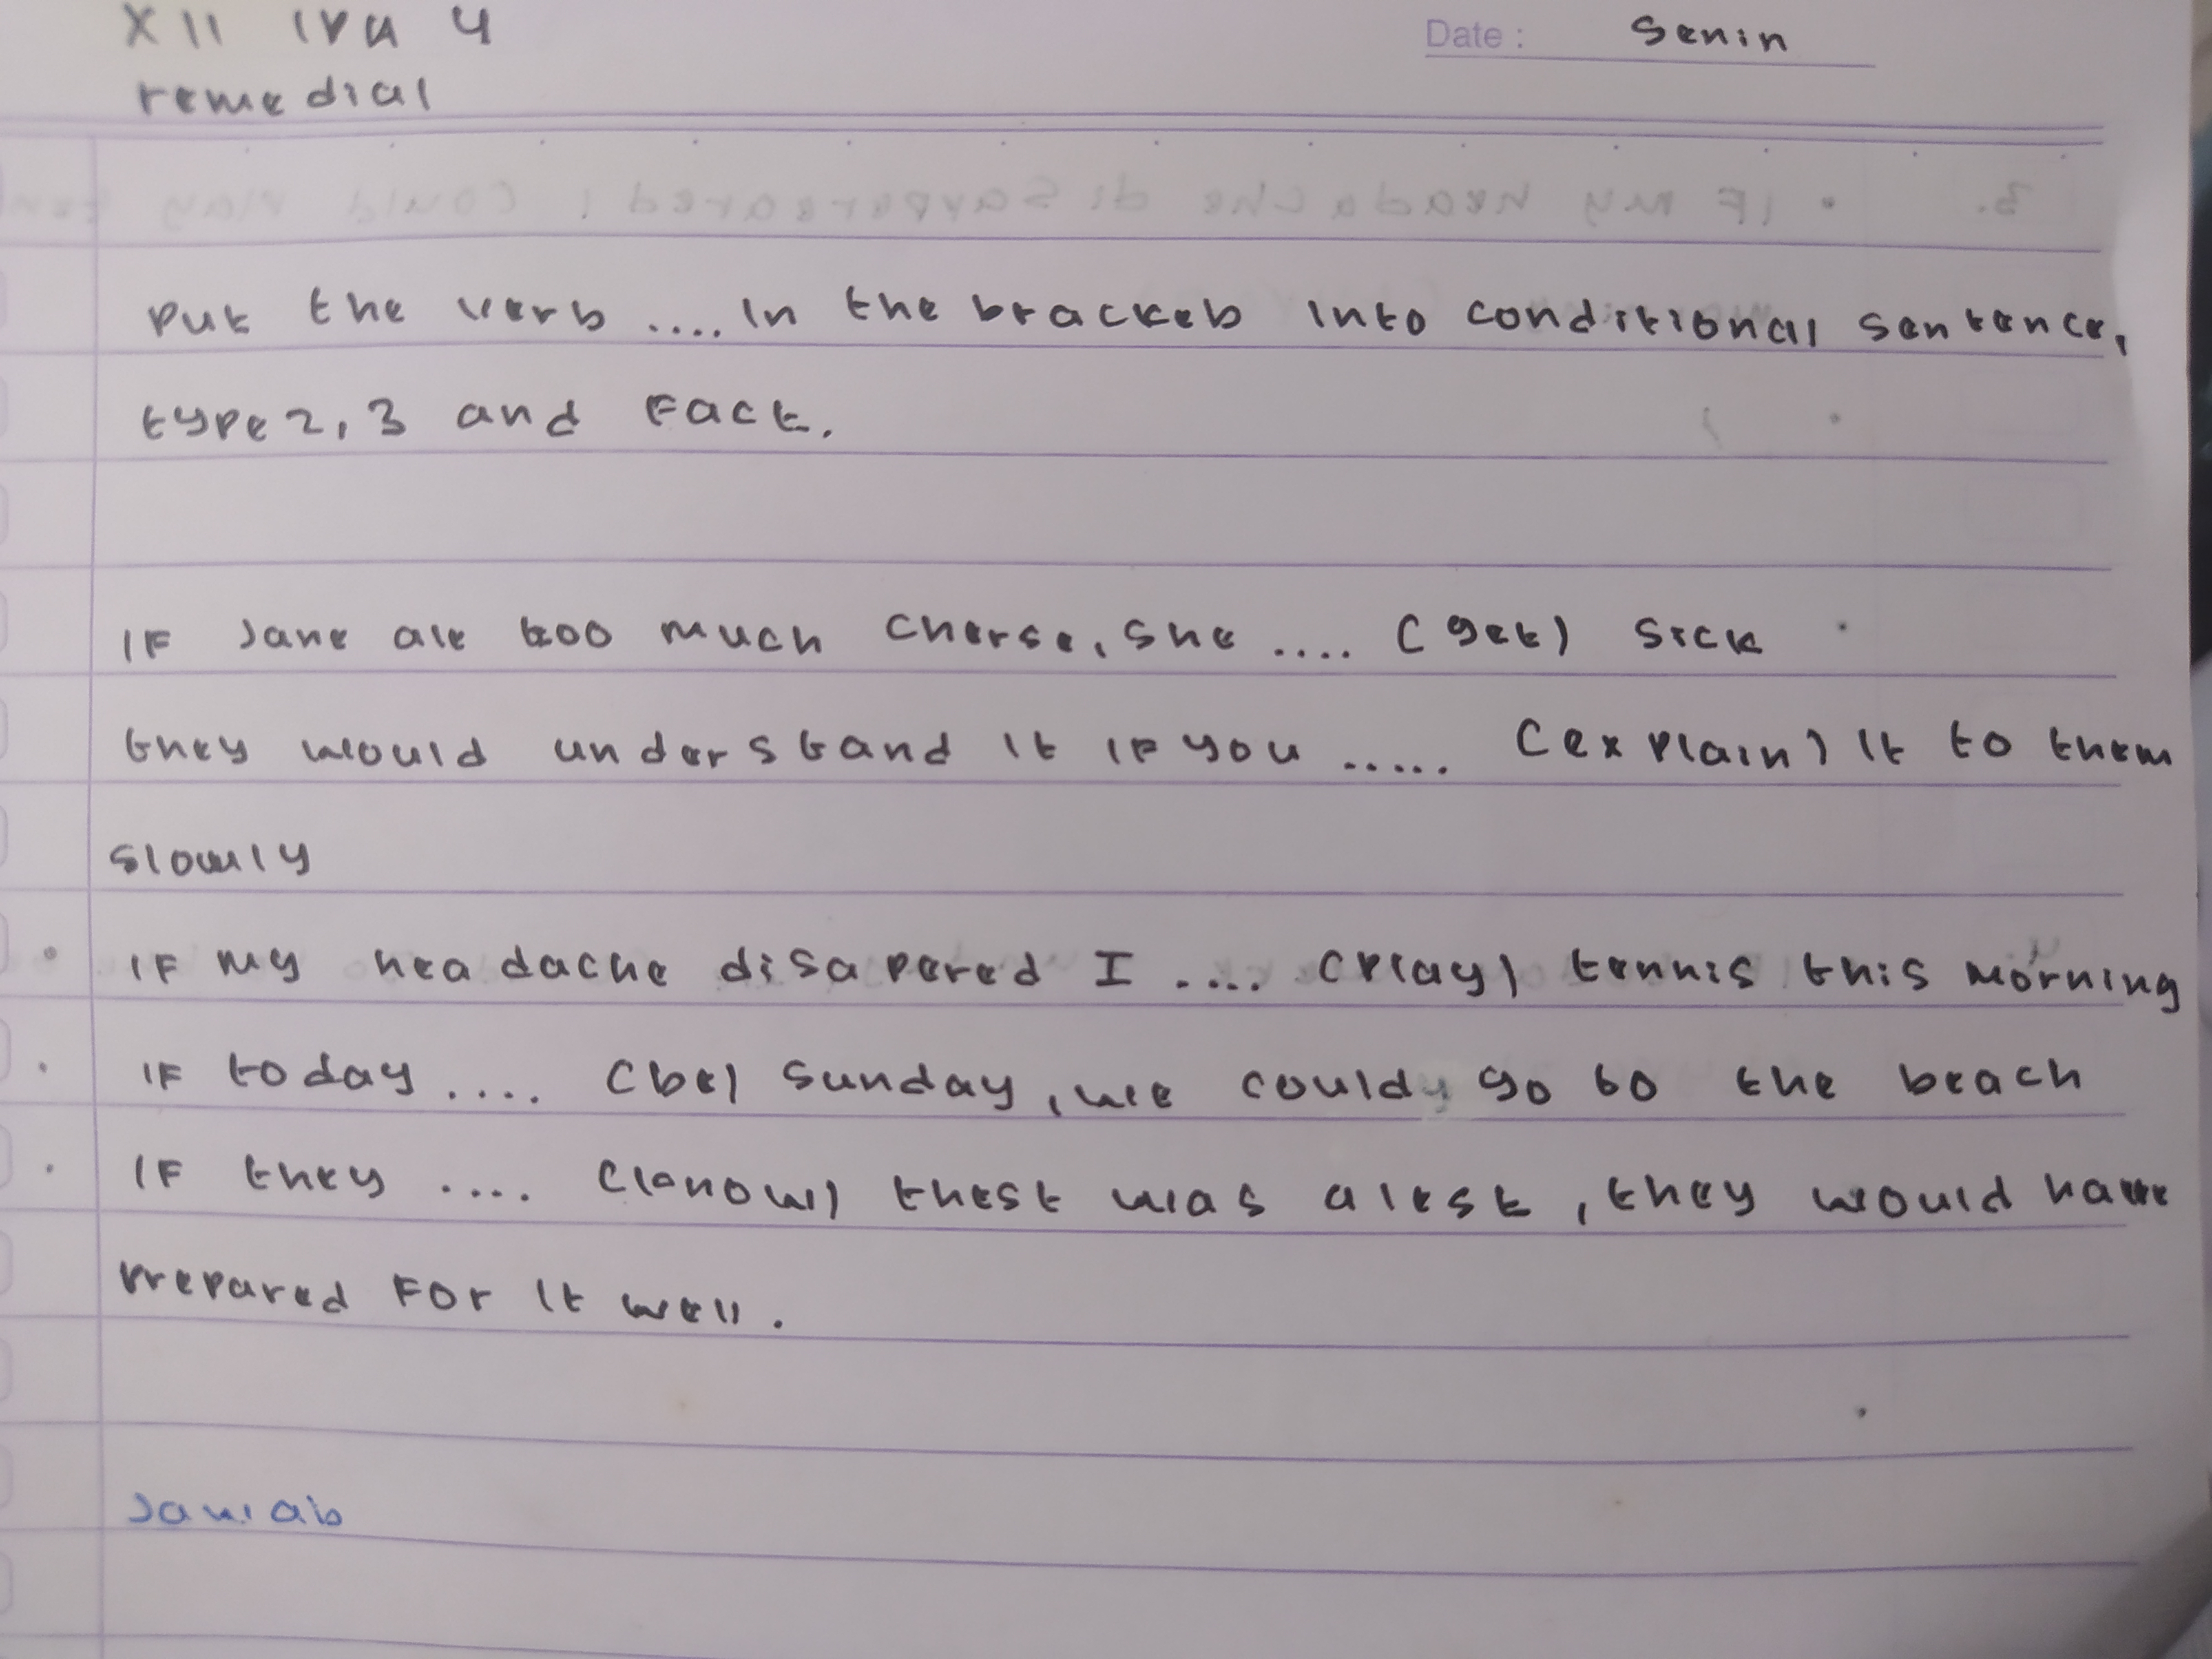 XII IPA 4
Date: Senin
remedial
put the verb .... in the bracket into conditional sentence,
type 2, 3 and Fact.
IF Jane ate too much cherse, she .... (get) sick
they would understand it if you ..... (explain) it to them
slowly
IF my headache dissapered I .... (play) tennis this morning
IF today .... (be) sunday, we could go to the beach
IF they .... (know) thest was a lest, they would have
prepared For it well.
Jawab